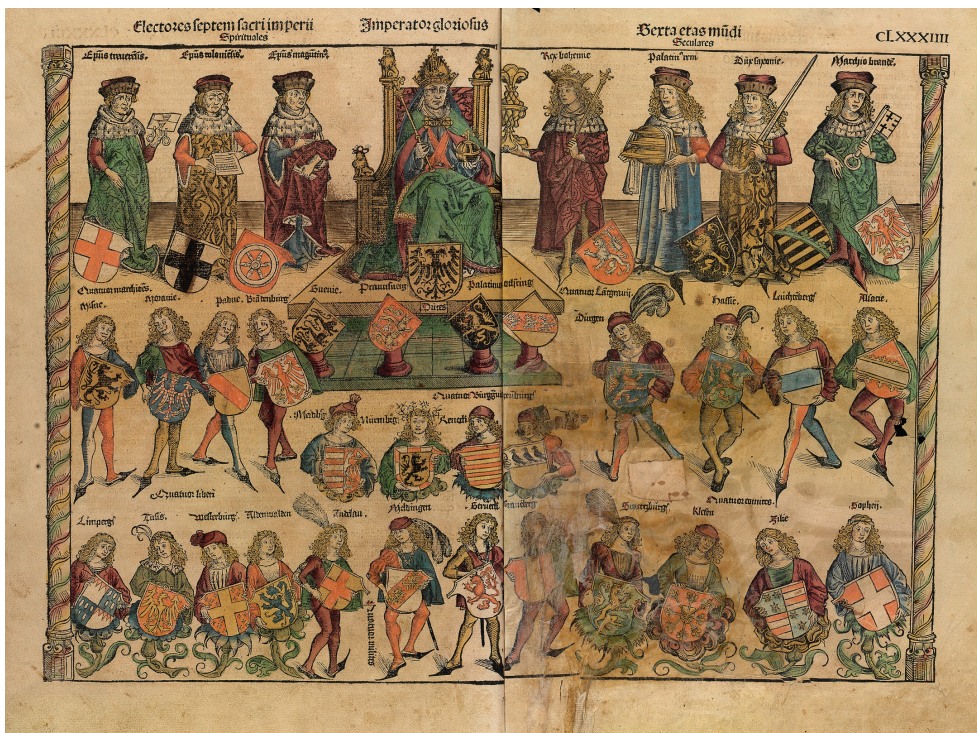 Electores septem sacri imperii
Spirituales
Imperator gloriosus
Sexta etas mūdi
Seculares
CLXXXIIII
Epūs treuerēsis.
Epūs coloniēsis.
Epūs magūtinꝰ
Rex bohemie
Palatinꝰ reni
Dux saxonie.
Marchio brandē.
Quatuor marchiōes.
Misne.
Morauie.
Padue.
Brādenburg
Sueuie.
Prunsuicens.
Palatinus
Duces
Quatuor Lātgrauij.
Dürgen
Hassie.
Leuchtēberg
Alsacie.
Meidbūg
Nüremberg.
Reneck
Quatuor liberi
Limperg
Tusis.
Westerburg.
Aldenwalden
Andelau.
Meldingen
Quatuor milites
Quatuor comites.
Kleuen
Zilie
Sophoij.